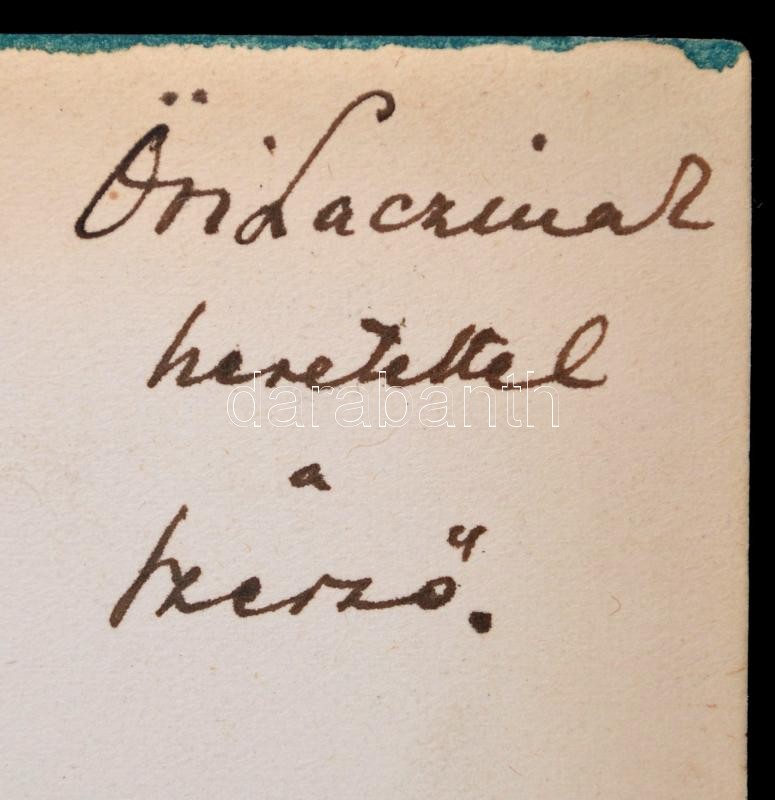 Öri Laczinak
szeretettel
darabanth
a
szerző.